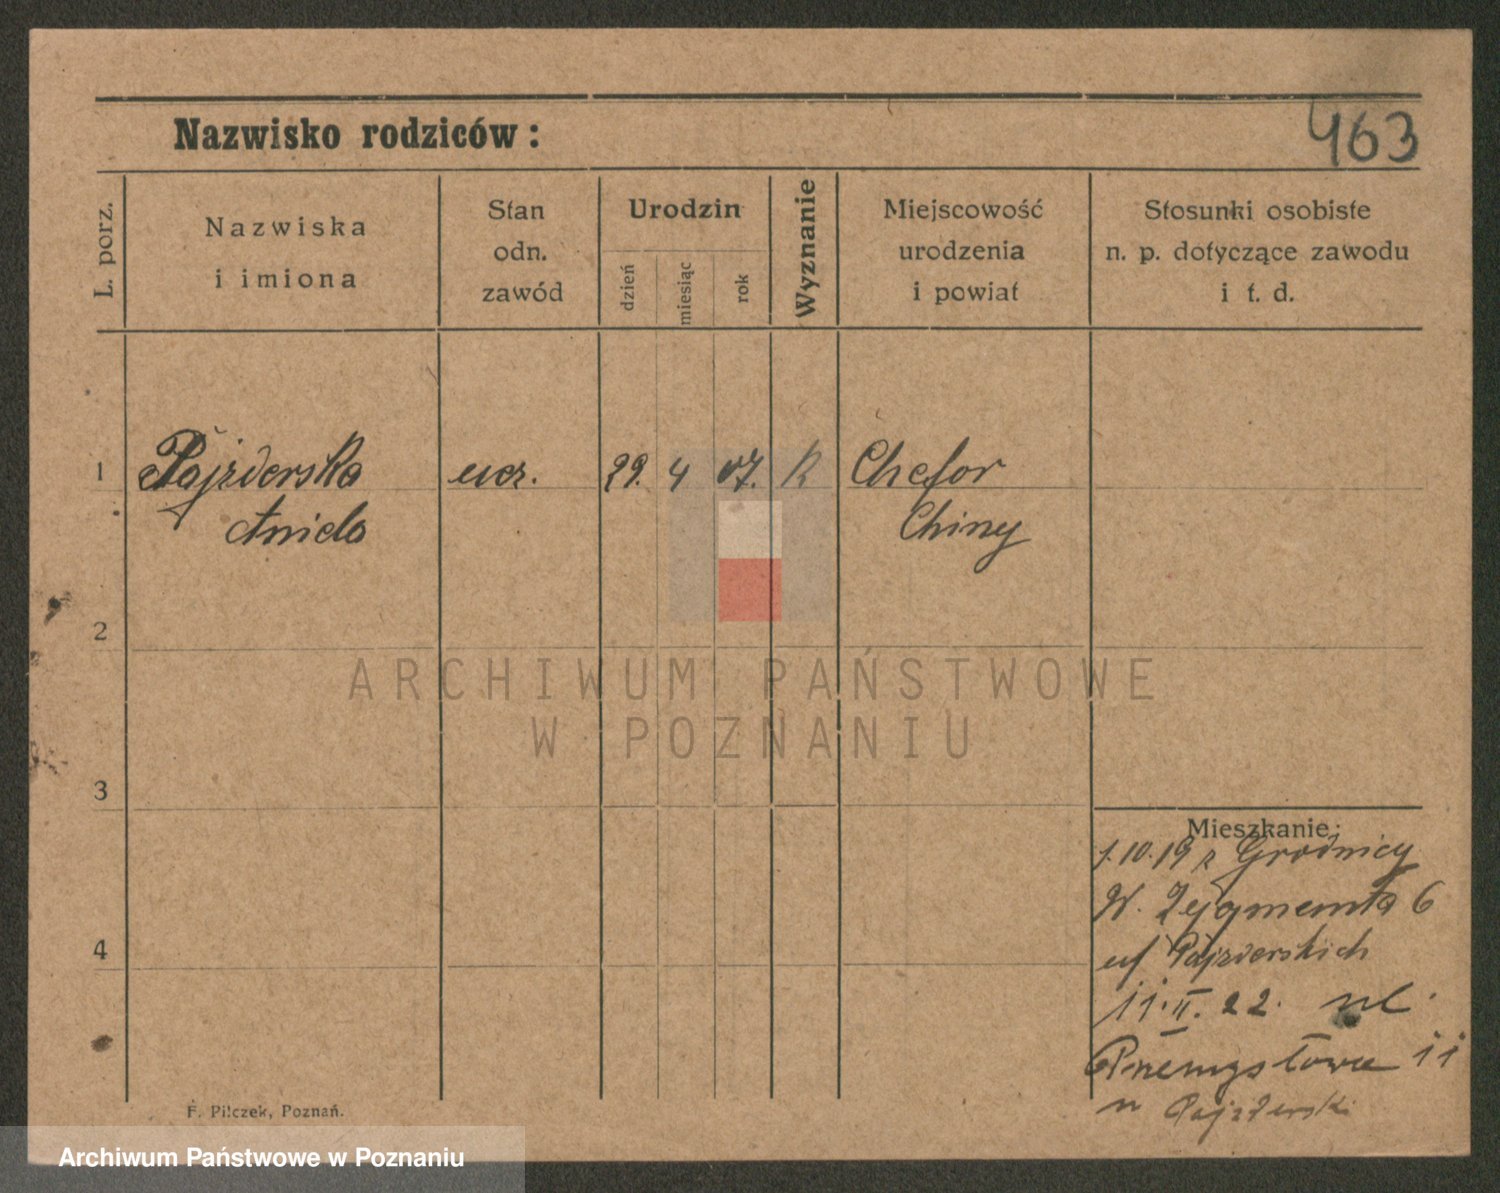 463
Nazwisko rodziców:
L. porz.
Nazwiska
i imiona
Stan
odn.
zawód
Urodzin
dzień
miesiąc
rok
Wyznanie
Miejscowość
urodzenia
i powiat
Stosunki osobiste
n. p. dotyczące zawodu
i t. d.
1 Pajzderska ucz. 29. 4 07. K Chefor
Aniela Chiny
2
ARCHIWUM PAŃSTWOWE
W POZNANIU
3
Mieszkanie:
1.10.19 z Grodnicy
W. Zygmunta 6
Pajzderskich
4
11.II.22. ul.
Przemysłowa 11
u Pajzderski
F. Pilczek, Poznań.
Archiwum Państwowe w Poznaniu